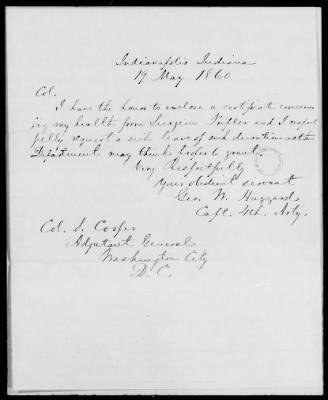 Indianapolis Indiana
19 May 1860
Col.
I have the honor to enclose a certificate concern
ing my health from Surgeon and I respect
fully request a sick leave of such duration as the
Department may think proper to grant.
Very Respectfully
Your obedient servant
Geo. W. Hazzard
Capt. 4th. Arty.
Col. S. Cooper
Adjutant General
Washington City
D. C.